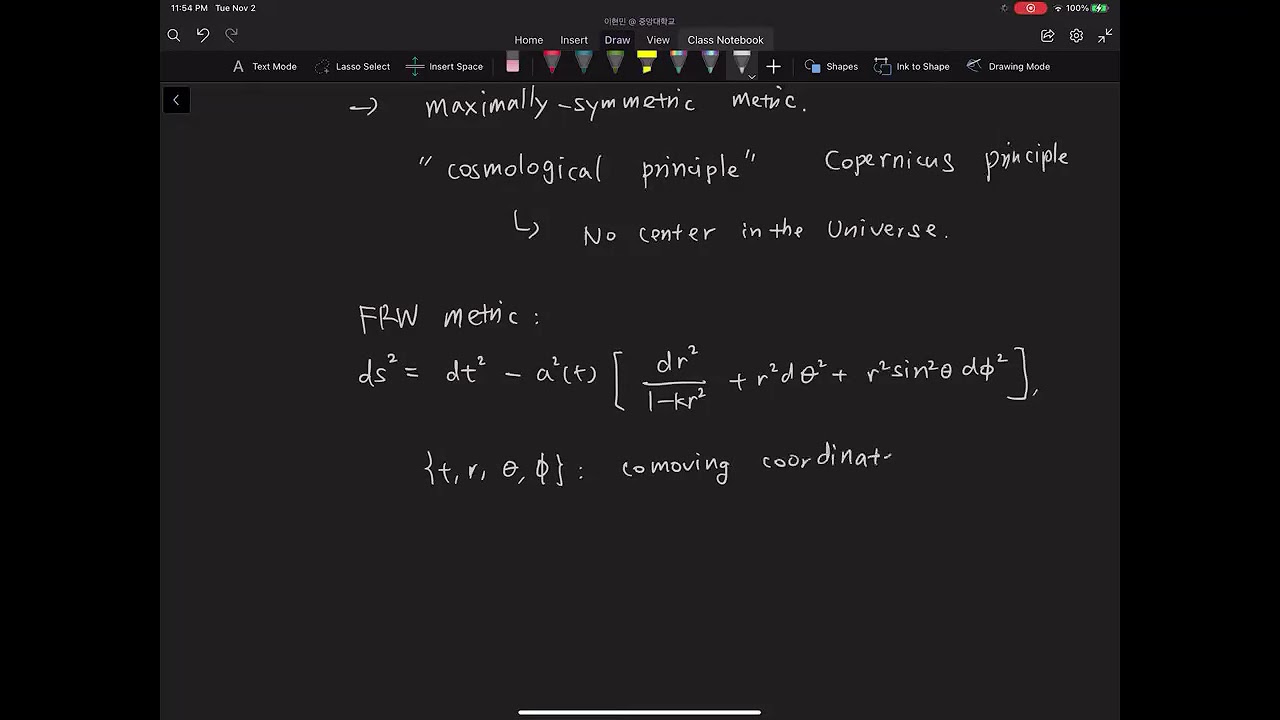 11:54 PM Tue Nov 2
100%
이현민 @ 중앙대학교
Home Insert Draw View Class Notebook
Text Mode Lasso Select Insert Space Shapes Ink to Shape Drawing Mode
→ maximally-symmetric metric.
"cosmological principle" Copernicus principle
↳ No center in the Universe.
FRW metric:
ds² = dt² - a²(t) [ dr²/(1-kr²) + r²dθ² + r²sin²θ dϕ² ],
{t, r, θ, ϕ} : comoving coordinat